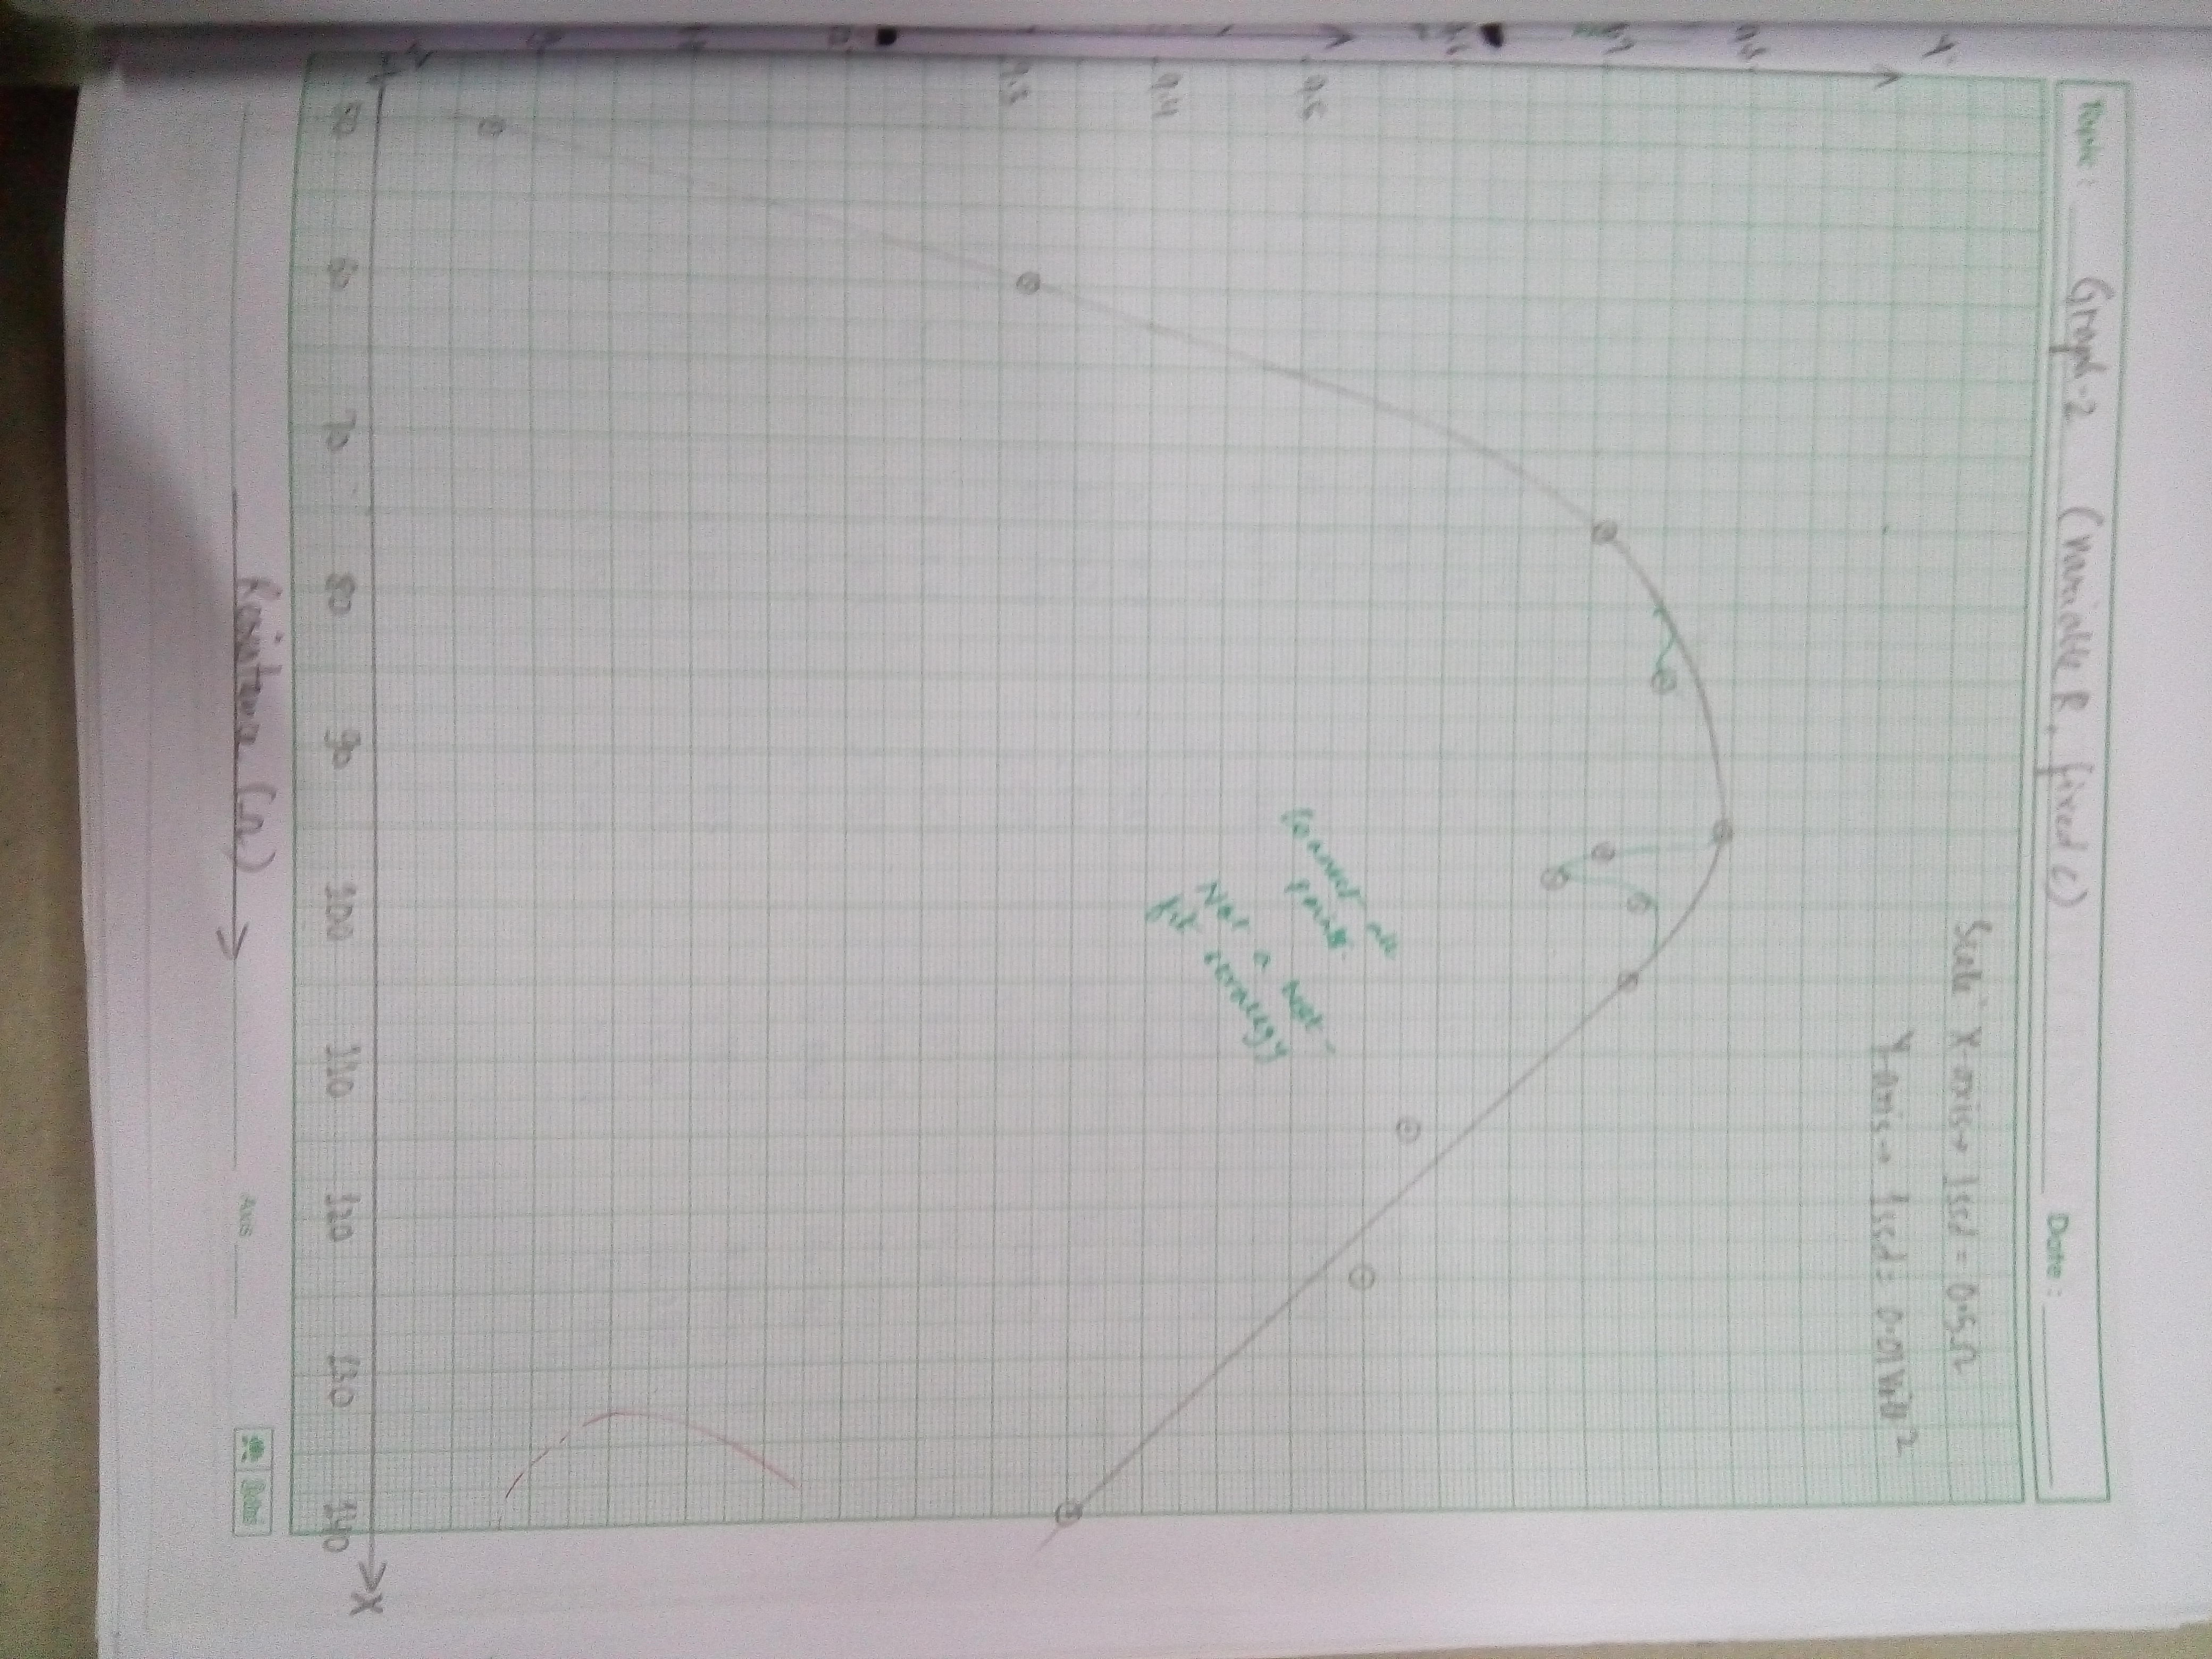 Topic: Graph-2 (variable R, fixed C)
Date:
Scale X-axis→ 1ssd = 0.5Ω
Y-axis→ 1ssd = 0.01 Volt²
Y
9.8
Connect all
points.
Not a best-
fit strategy
9.5
9.4
9.3
50 60 70 80 90 100 110 120 130 140
X
Resistance (Ω)
Axis